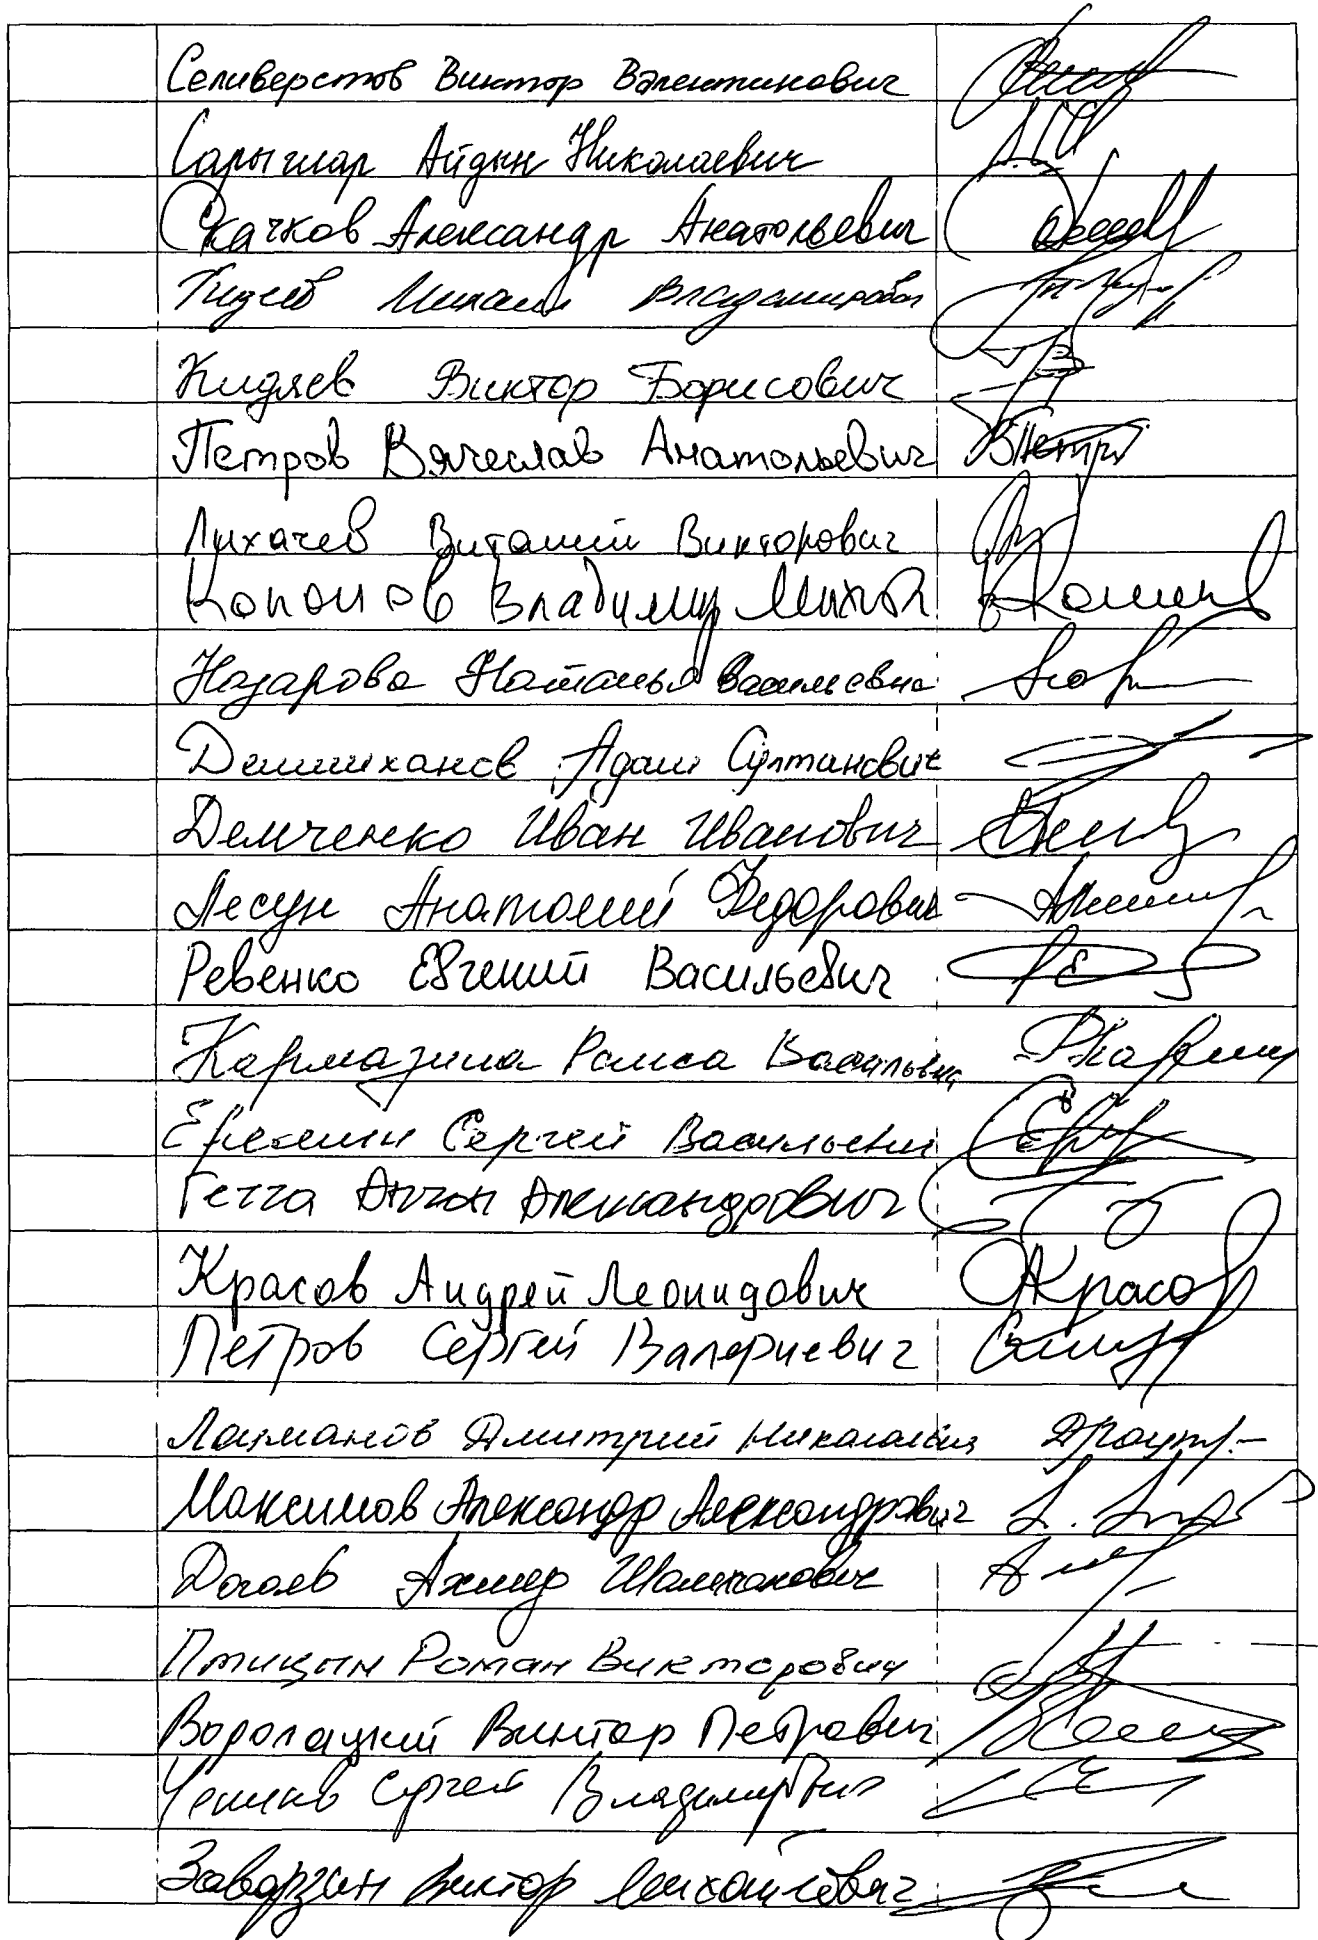 Селиверстов Виктор Валентинович
Сарыглар Айдын Николаевич
Скачков Александр Анатольевич
Михаил Владимирович
Кидяев Виктор Борисович
Петров Вячеслав Анатольевич ВПетр
Лихачев Виталий Викторович
Кононов Владимир Михайл
Назарова Наталья Васильевна
Делимханов Адам Султанович
Демченко Иван Иванович
Лесун Анатолий Федорович
Ревенко Евгений Васильевич
Кармазина Раиса Васильевна
Сергей Васильевич
Гетта Антон Александрович
Красов Андрей Леонидович Красов
Петров Сергей Валериевич
Дмитрий Николаевич
Максимов Александр Александрович
Догаев Ахмед Шамханович
Птицын Роман Викторович
Водолацкий Виктор Петрович
Сергей Владимирович
Заварзин Виктор Михайлович